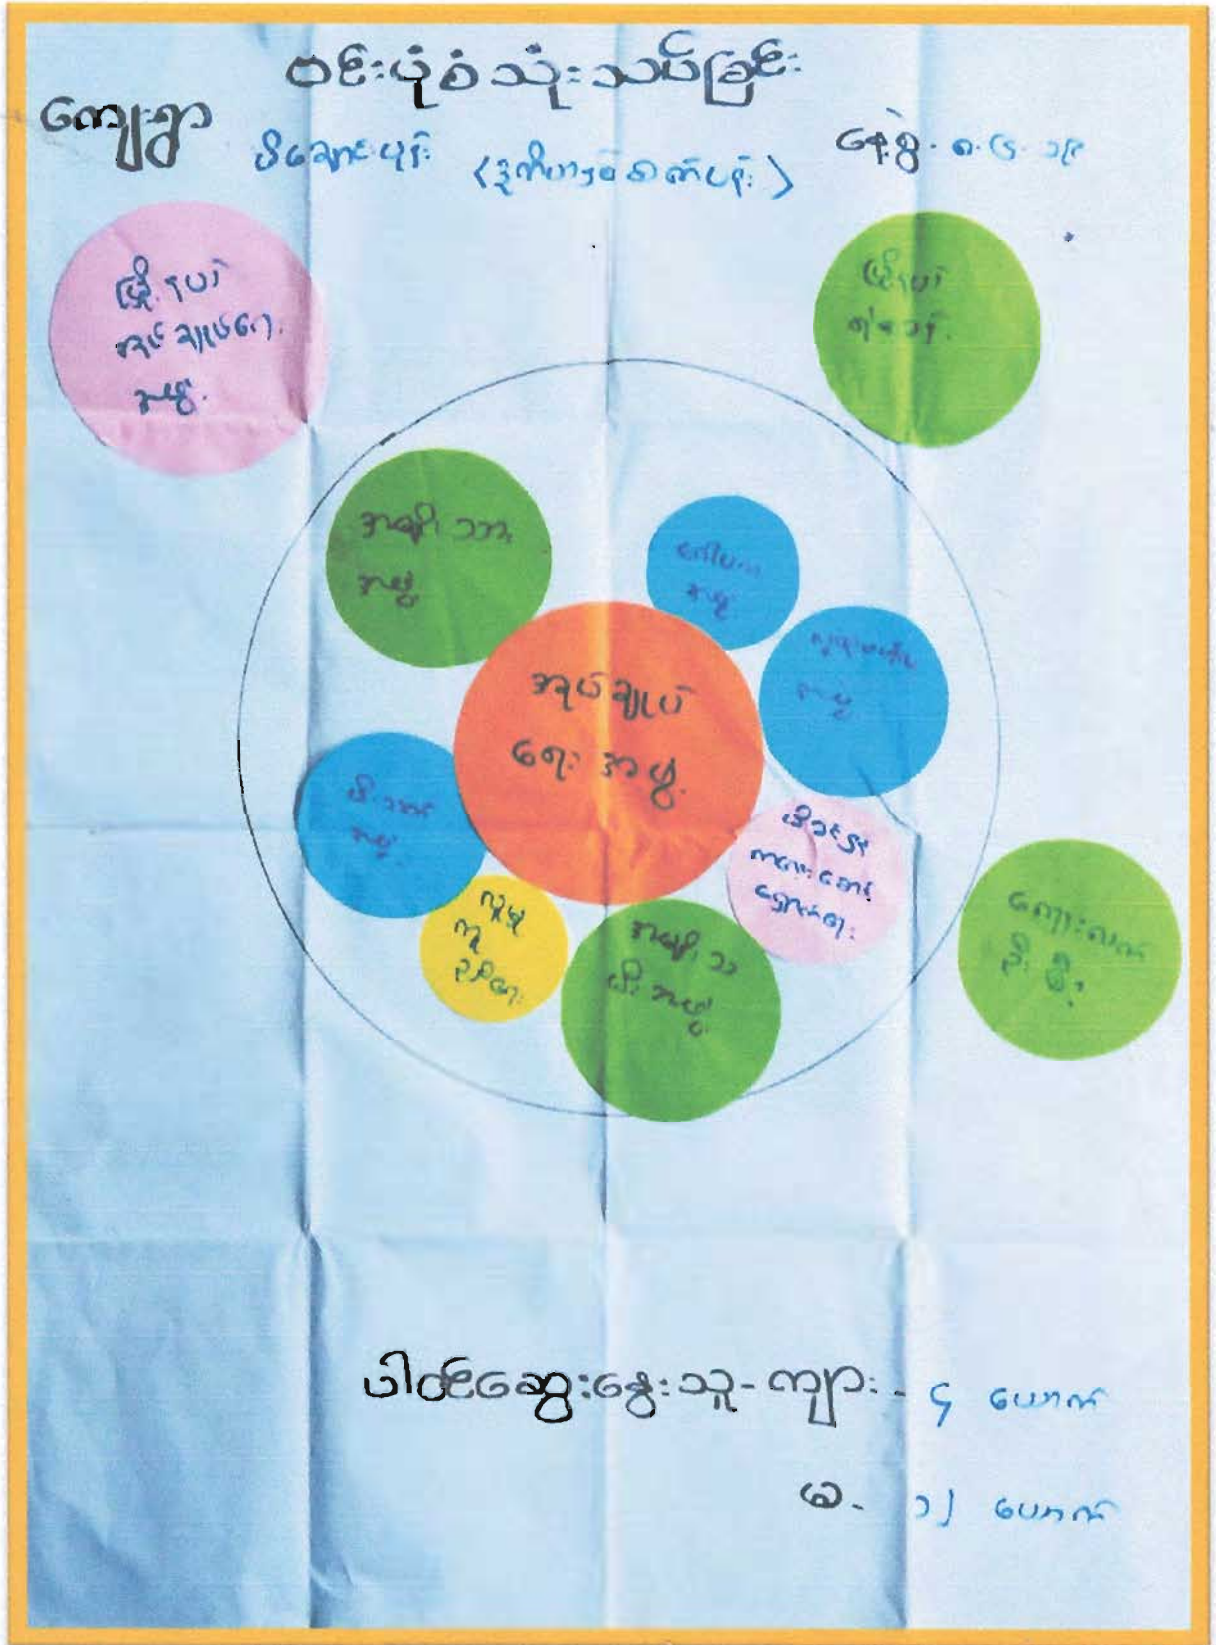 ဗင်းပုံစံသုံးသပ်ခြင်း
ကျေးရွာ
နေ့စွဲ. ၈.၆.၁၉
မြို့နယ်
အုပ်ချုပ်ရေး
အဖွဲ့
မြို့နယ်
ရဲစခန်း
အမျိုးသား
အဖွဲ့
အဖွဲ့
အဖွဲ့
အုပ်ချုပ်
ရေးအဖွဲ့
မီးသတ်
အဖွဲ့
မိခင်နှင့်
ကလေးစောင့်
ရှောက်ရေး
လူမှု
ကူ
ညီရေး
အမျိုးသ
မီးအဖွဲ့
ကျေးလက်
ဦးစီး
ပါဝင်ဆွေးနွေးသူ-ကျား- ၄ ယောက်
မ- ၁၂ ယောက်